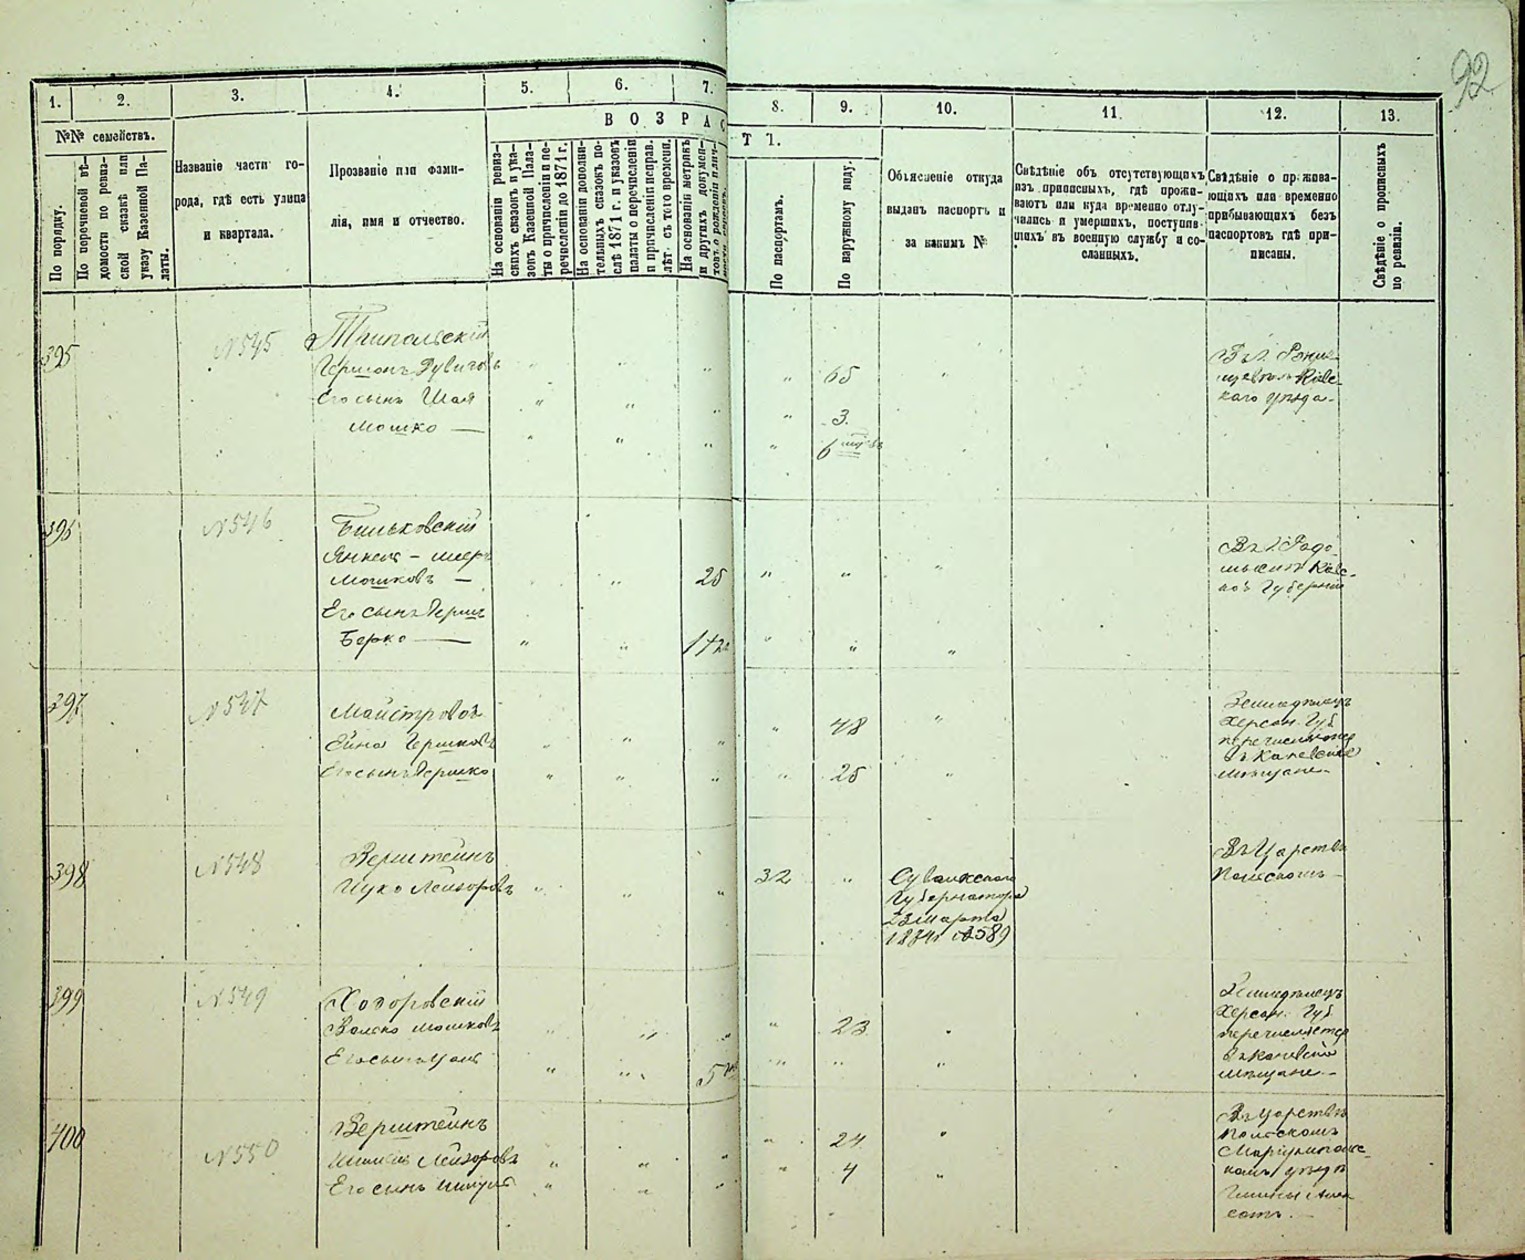 92
1. 2. 3. 4. 5. 6. 7. 8. 9. 10. 11. 12. 13.
№№ семействъ.
По порядку.
По перечневой вѣ-
домости по ревиз-
ской сказкѣ или
указу Казенной Па-
латы.
Названіе части го-
рода, гдѣ есть улица
и квартала.
Прозваніе или фами-
лія, имя и отчество.
ВОЗРАСТЪ.
На основаніи ревиз-
скихъ сказокъ и ука-
зовъ Казенной Пала-
ты о причисленіи и пе-
речисленіи до 1871 г.
На основаніи дополни-
тельныхъ сказокъ по-
слѣ 1871 г. и указовъ
палаты о перечисленіи
и причисленіи исправ.
лѣт. съ того времени.
На основаніи метрикъ
и другихъ докумен-
товъ о рожденіи
По паспортамъ.
По наружному виду.
Объясненіе откуда
выданъ паспортъ и
за какимъ №
Свѣдѣніе объ отсутствующихъ
изъ приписныхъ, гдѣ прожи-
ваютъ или куда временно отлу-
чились и умершихъ, поступив-
шихъ въ военную службу и со-
сланныхъ.
Свѣдѣніе о прожива-
ющихъ или временно
прибывающихъ безъ
паспортовъ гдѣ при-
писаны.
Свѣдѣніе о прописныхъ
по ревизіи.
395 №545 Трипольскій
Гершонъ Дувиговъ 65
Его сынъ Шая 3.
Мошко — 6
каго уѣзда
396 №546 Бильковскій
Янкель – Шер
Мошковъ — 25
Его сынъ Герш
Берко —
Въ г. Радо-
мыслѣ Кіев-
ской Губерніи
397 №547 Майстровой
Ейна Гершковъ 48
Его сынъ Гершко 25
Земледѣлецъ
Херсон. Губ.
въ Каневскіе
мѣщане
398 №548 Верштейнъ
Ицко Лейзоровъ 32
Сувалкскаго
Губернатора
23 Марта
1874 г. №589
Въ Царствѣ
Польскомъ
399 №549 Ходоровскій
Волько Мошковъ 23
Его сынъ 5
Земледѣлецъ
Херсон. Губ.
перечисляется
въ Каневскіе
мѣщане
400 №550 Верштейнъ
Лейзоровъ 24
Его сынъ 4
Въ Царствѣ
Польскомъ
Маріямпольс-
комъ уѣздѣ
Гмины